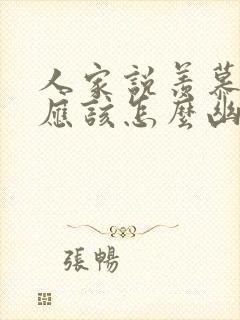 人家說羨慕
應該怎麼幽
張暢